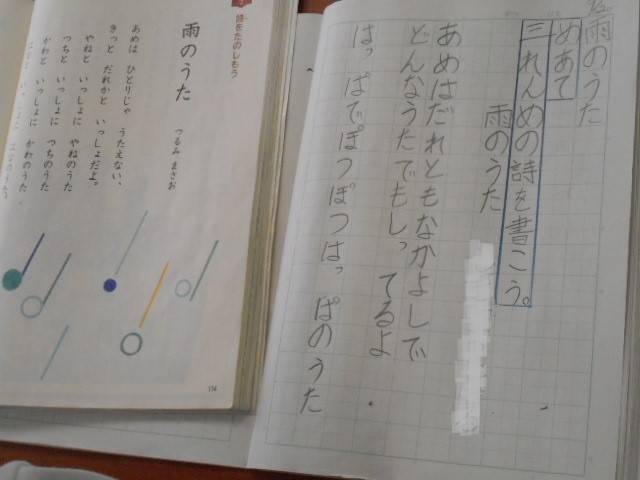 雨のうた
めあて
三れんめの詩を書こう。
雨のうた
あめはだれともなかよしで
どんなうたでもしってるよ
はっぱでぽつぽつはっぱのうた
詩をたのしもう
雨のうた
つるみ まさお
あめは ひとりじゃ うたえない、
きっと だれかと いっしょだよ。
やねと いっしょに やねのうた
つちと いっしょに つちのうた
かわと いっしょに かわのうた
はなと いっしょに はなのうた。
114